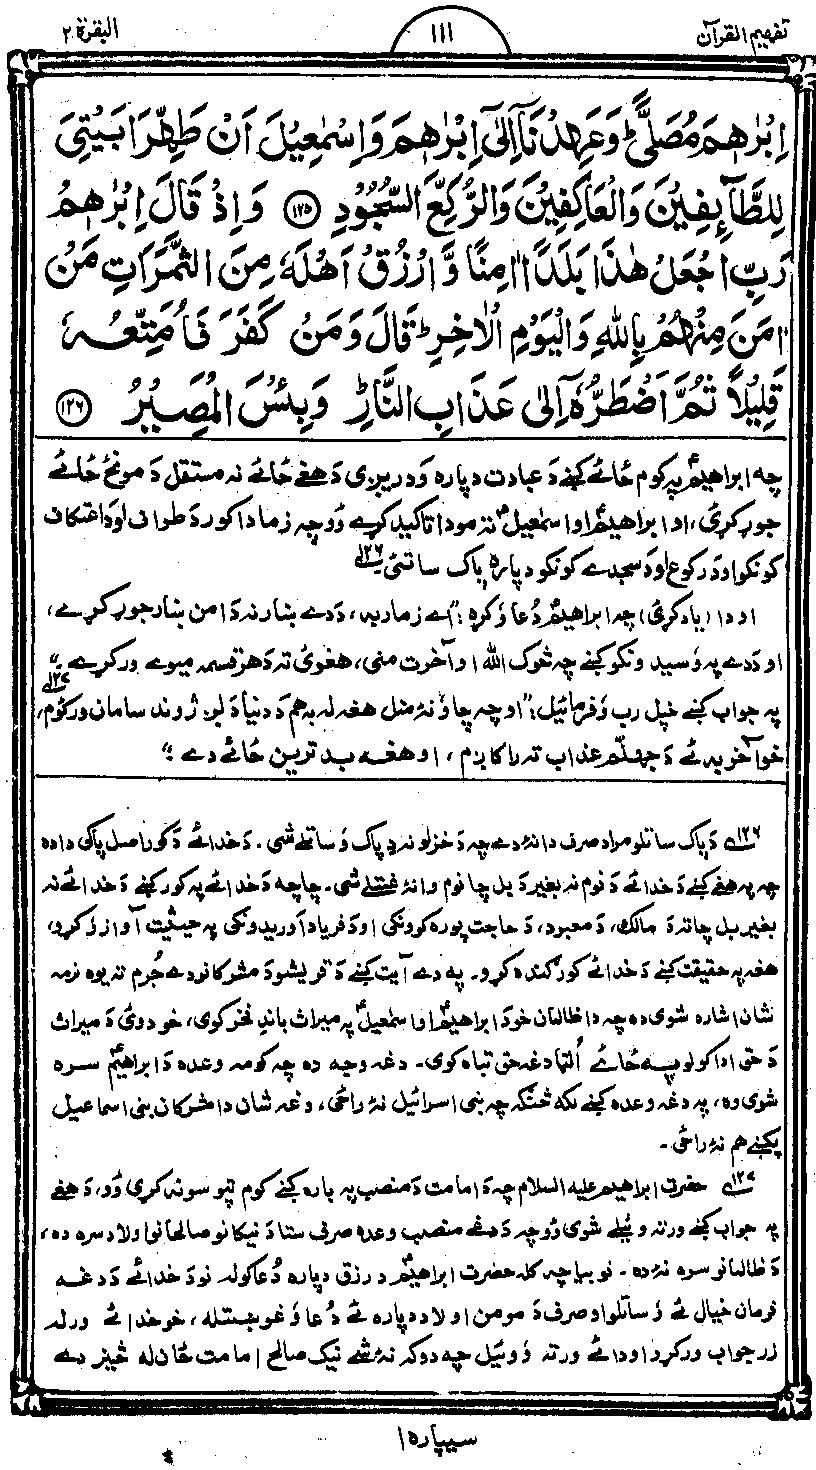 تفهیم القرآن
١١١
البقرة ٢
اِبْرٰهٖمَ مُصَلًّى ؕ وَعَهِدْنَاۤ اِلٰۤى اِبْرٰهٖمَ وَاِسْمٰعِيْلَ اَنْ طَهِّرَا بَيْتِيَ
لِلطَّآئِفِيْنَ وَالْعٰكِفِيْنَ وَالرُّكَّعِ السُّجُوْدِ ﴿١٢٥﴾ وَاِذْ قَالَ اِبْرٰهٖمُ
رَبِّ اجْعَلْ هٰذَا بَلَدًا اٰمِنًا وَّارْزُقْ اَهْلَهٗ مِنَ الثَّمَرٰتِ مَنْ
اٰمَنَ مِنْهُمْ بِاللّٰهِ وَالْيَوْمِ الْاٰخِرِ ؕ قَالَ وَمَنْ كَفَرَ فَاُمَتِّعُهٗ
قَلِيْلًا ثُمَّ اَضْطَرُّهٗۤ اِلٰى عَذَابِ النَّارِ ؕ وَبِئْسَ الْمَصِيْرُ ﴿١٢٦﴾
چه ابراهیمؑ پہ کوم ځائے کښے دَ عبادت دپاره وَدریږی دَ هغے ځائے نہ مستقل دَ مونځ ځائے
جوړ کړئ، او ابراهیمؑ او اسمٰعیلؑ تہ مو دا تاکید کړے وُو چہ زما دا کور دَ طواف او دَ اعتکاف
کونکو او دَ رکوع او دَ سجدے کونکو دپاره پاک ساتئ ۱۲۶ے
او دا (یاد کړئ) چہ ابراهیمؑ دُعا وَکړه: "اے زما ربہ، دَ دے ښار نہ دَ امن ښار جوړ کړے،
او دَ دے پہ وَسیدونکو کښے چہ څوک الله او آخرت منی، هغوئ تہ دَ هر قسمہ میوے ورکړے" ۱۲۷ے
پہ جواب کښے خپل رب وَفرمائیل: "او چہ چا وَ نۀ منل هغہ لہ بہ هم دَ دنیا دَ لږ ژوند سامان ورکوم،
خو آخر بہ ئے دَ جهنّم عذاب تہ راکاږم، او هغہ بدترین ځائے دے"
۱۲۶ے دَ پاک ساتلو مراد صرف دا نۀ دے چہ دَ خزلو نہ دِ پاک وَساتلے شی. دَ خدائے دَ کور اصل پاکی دا ده
چہ پہ هغے کښے دَ خدائے دَ نوم نہ بغیر دَ بل چا نوم وا نۀ خستلے شی. چا چہ دَ خدائے پہ کور کښے دَ خدائے نہ
بغیر بل چا تہ دَ مالک، دَ معبود، دَ حاجت پوره کونکی او دَ فریاد آوریدونکی پہ حیثیت آواز وَکړو،
هغہ پہ حقیقت کښے دَ خدائے کور ګنده کړو۔ پہ دے آیت کښے دَ قریشو دَ مشرکانو دے جُرم تہ یوه نزمہ
شان اشاره شوی ده چہ دا ظالمان خو دَ ابراهیمؑ او اسمٰعیلؑ پہ میراث باندِ فخر کوی، خو دوئ دَ میراث
دَ حق ادا کولو پہ ځائے اُلټا دغہ حق تباه کوی۔ دغہ وجہ ده چہ کومہ وعده دَ ابراهیمؑ سره
شوی وه، پہ دغہ وعده کښے لکہ څنګہ چہ بنی اسرائیل نۀ راځی، دغہ شان دا مشرکان بنی اسماعیل
پکښے هم نۀ راځی۔
۱۲۷ے حضرت ابراهیم علیہ السلام چہ دَ امامت دَ منصب پہ باره کښے کوم تپوسونہ کړی وُو، دَ هغے
پہ جواب کښے ورتہ وئیلے شوی وُو چہ دَ دغے منصب وعده صرف ستا دَ نیکانو صالحانو اولاد سره ده،
دَ ظالمانو سره نۀ ده۔ نو بیا چہ کلہ حضرت ابراهیمؑ دَ رزق دپاره دُعا کولہ نو دَ خدائے دَ دغہ
فرمان خیال ئے وَساتلو او صرف دَ مومن اولاد دپاره ئے دُعا وَغوښتلہ، خو خدائے ورلہ
زر جواب ورکړو او دا ئے ورتہ وَوئیل چہ دوکہ نۀ شے نیک صالح امامت ځان لہ څیز دے
سیپاره ۱